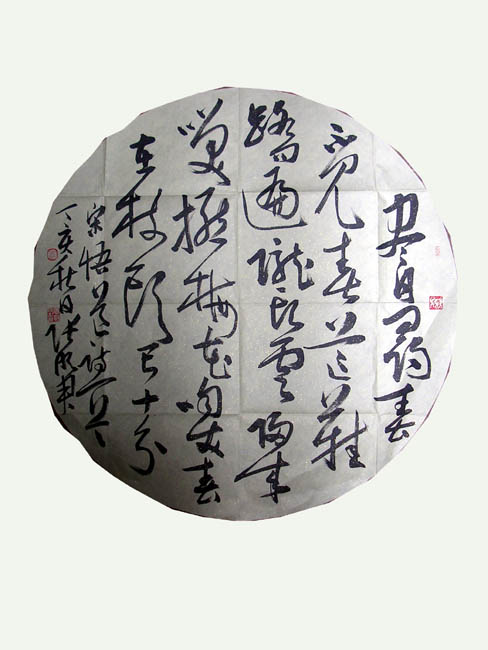 尽日寻春
不见春芒鞋
踏遍陇头云归来
笑撚梅花嗅春
在枝头已十分
宋悟道诗
丁亥秋日